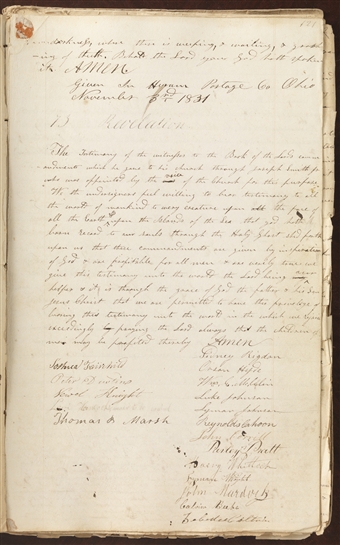 121
darkness, where there is weeping, & wailing, & gnash
ing of teeth. Behold the Lord your God hath spoken
it AMEN
Given in Hyrum Portage Co Ohio
November 3rd 1831
Revelation
The Testimony of the witnesses to the Book of the Lords comma
ndments which he gave to his church through Joseph Smith Jr
who was appointed by the voice of the Church for this purpose
We the undersigned feel willing to bear testimony to all
the world of mankind to every creature upon all the face of
all the Earth upon the Islands of the Sea that god hath
born record to our souls through the Holy Ghost shed forth
upon us that these commandments are given by inspiration
of God & are profitable for all men & are verily true we
give this testimony unto the world the Lord being our
helper & it is through the grace of God the father & his Son
Jesus Christ that we are permitted to have this privelege of
bearing this testimony unto the world in the which we rejoice
exceedingly praying the Lord always that the children of
men may be profited thereby Amen
Sidney Rigdon
Joshua Fairchild
Orson Hyde
Peter
Wm E. McLellin
Newel Knight
Luke Johnson
Lyman Johnson
Thomas B Marsh
Reynolds Cahoon
John
Parley Pratt
Harvey Whitlock
Lyman Wight
John Murdock
Calvin Beebe
Zebedee Coltrin